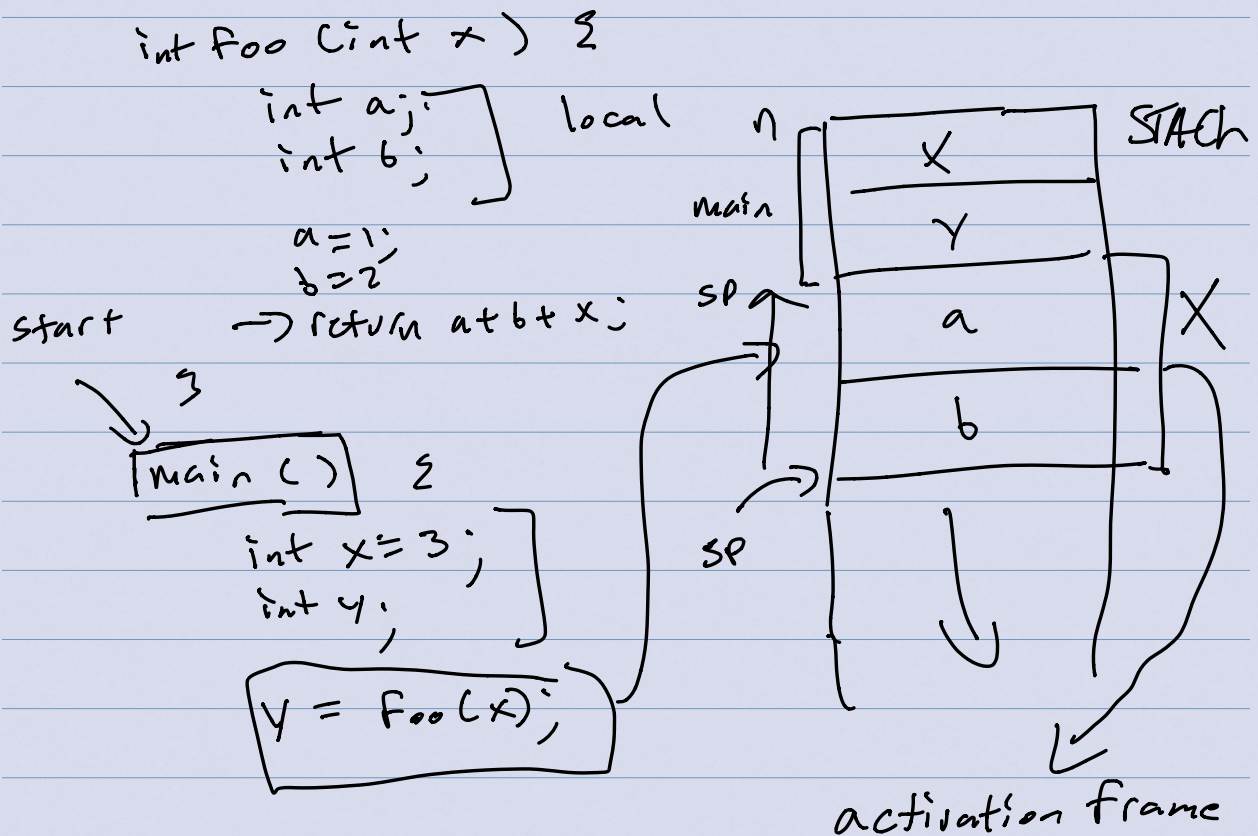 int foo (int x) {
int a;
int b;
local
a = 1;
b = 2
start → return a+b+x;
}
main () {
int x = 3;
int y;
y = foo(x);
n
STACK
main
x
y
SP
a
X
b
SP
activation frame